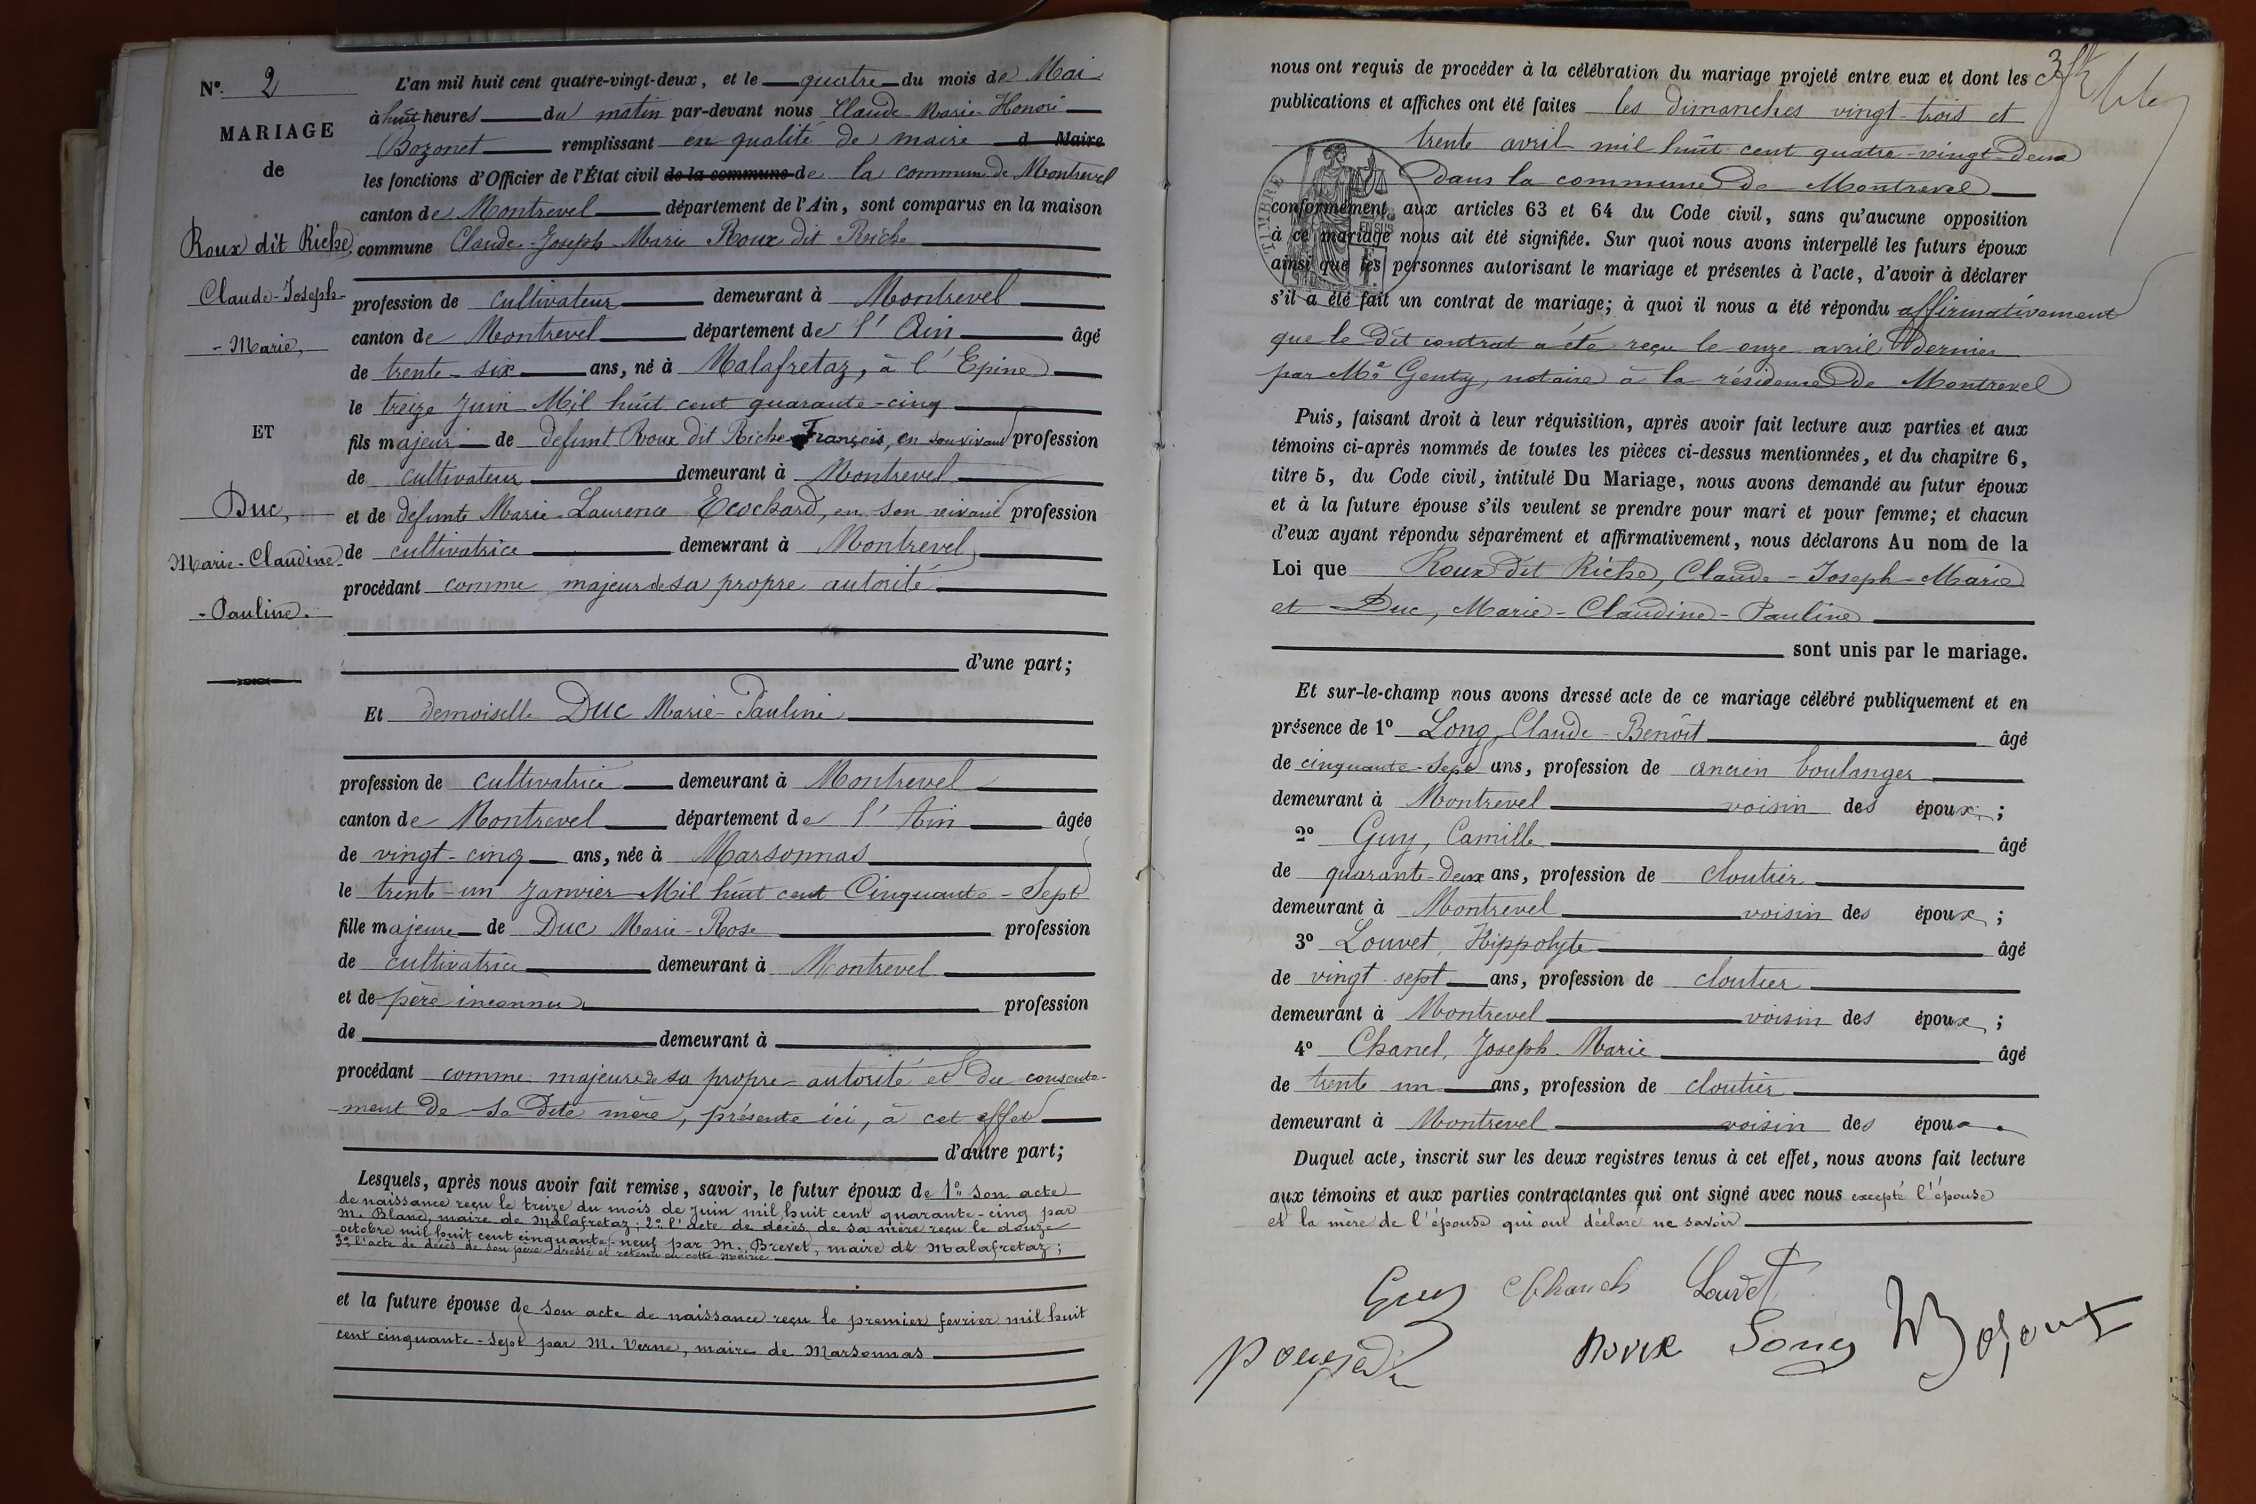 N° 2
MARIAGE
de
Roux dit Riche
Claude-Joseph-
-Marie,
ET
Duc,
Marie-Claudine-
-Pauline.
L'an mil huit cent quatre-vingt-deux, et le quatre du mois de Mai
à huit heures du matin par-devant nous Claude-Marie-Honoré
Bozonet remplissant en qualité de maire d Maire
les fonctions d'Officier de l'État civil de la commune de la commune de Montrevel
canton de Montrevel département de l'Ain, sont comparus en la maison
commune Claude-Joseph-Marie Roux dit Riche
profession de cultivateur demeurant à Montrevel
canton de Montrevel département de l'Ain âgé
de trente-six ans, né à Malafretaz, à l'Epine
le treize Juin Mil huit cent quarante-cinq
fils majeur de defunt Roux dit Riche François, en son vivant profession
de cultivateur demeurant à Montrevel
et de défunte Marie-Laurence Ecochard, en son vivant profession
de cultivatrice demeurant à Montrevel
procédant comme majeur de sa propre autorité
d'une part;
Et demoiselle Duc Marie-Pauline
profession de cultivatrice demeurant à Montrevel
canton de Montrevel département de l'Ain âgée
de vingt-cinq ans, née à Marsonnas
le trente-un Janvier Mil huit cent Cinquante-Sept
fille majeure de Duc Marie-Rose profession
de cultivatrice demeurant à Montrevel
et de père inconnu profession
de demeurant à
procédant comme majeure de sa propre autorité et du consente-
-ment de sa dite mère, présente ici, à cet effet
d'autre part;
Lesquels, après nous avoir fait remise, savoir, le futur époux de 1° son acte
de naissance reçu le treize du mois de juin mil huit cent quarante-cinq par
M. Bland, maire de Malafretaz; 2° l'acte de décès de sa mère reçu le douze
octobre mil huit cent cinquante-neuf par M. Brevet, maire de Malafretaz;
3° l'acte de décès de son père dressé et retenu en cette Mairie
et la future épouse de son acte de naissance reçu le premier fevrier mil huit
cent cinquante-sept par M. Verne, maire de Marsonnas
nous ont requis de procéder à la célébration du mariage projeté entre eux et dont les
publications et affiches ont été faites les dimanches vingt-trois et
trente avril mil huit cent quatre-vingt-deux
dans la commune de Montrevel
conformément aux articles 63 et 64 du Code civil, sans qu'aucune opposition
à ce mariage nous ait été signifiée. Sur quoi nous avons interpellé les futurs époux
ainsi que les personnes autorisant le mariage et présentes à l'acte, d'avoir à déclarer
s'il a été fait un contrat de mariage; à quoi il nous a été répondu affirmativement
que le dit contrat a été reçu le onze avril dernier
par Me Genty, notaire à la résidence de Montrevel
TIMBRE
Puis, faisant droit à leur réquisition, après avoir fait lecture aux parties et aux
témoins ci-après nommés de toutes les pièces ci-dessus mentionnées, et du chapitre 6,
titre 5, du Code civil, intitulé Du Mariage, nous avons demandé au futur époux
et à la future épouse s'ils veulent se prendre pour mari et pour femme; et chacun
d'eux ayant répondu séparément et affirmativement, nous déclarons Au nom de la
Loi que Roux dit Riche, Claude-Joseph-Marie
et Duc, Marie-Claudine-Pauline
sont unis par le mariage.
Et sur-le-champ nous avons dressé acte de ce mariage célébré publiquement et en
présence de 1° Long, Claude-Benoît âgé
de cinquante-sept ans, profession de ancien boulanger
demeurant à Montrevel voisin des époux;
2° Guy, Camille âgé
de quarante-deux ans, profession de cloutier
demeurant à Montrevel voisin des époux;
3° Louvet, Hippolyte âgé
de vingt sept ans, profession de cloutier
demeurant à Montrevel voisin des époux;
4° Chanel, Joseph-Marie âgé
de trente un ans, profession de cloutier
demeurant à Montrevel voisin des époux.
Duquel acte, inscrit sur les deux registres tenus à cet effet, nous avons fait lecture
aux témoins et aux parties contractantes qui ont signé avec nous excepté l'épouse
et la mère de l'épouse qui ont déclaré ne savoir
Guy Louvet
roux Long